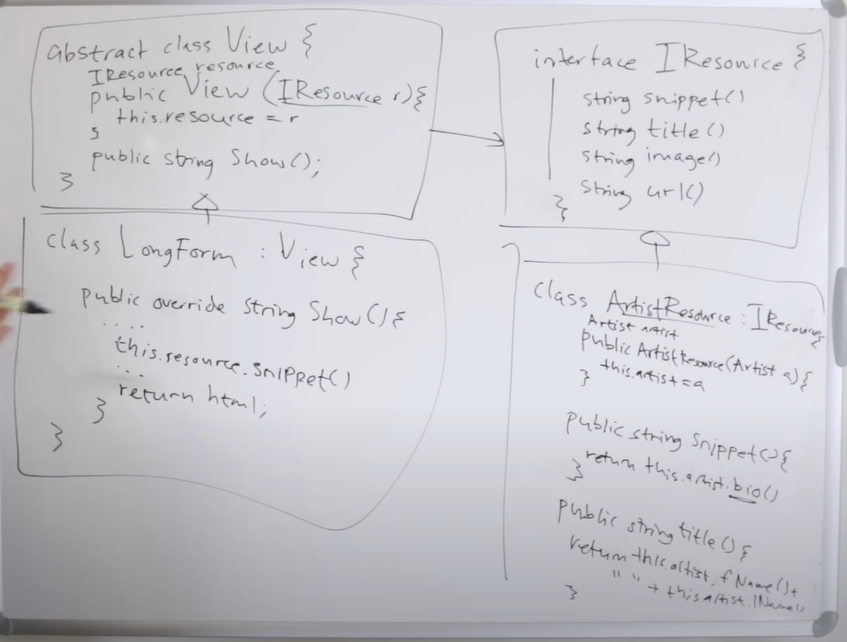 abstract class View {
IResource resource
public View (IResource r){
this.resource = r
}
public string Show();
}
interface IResource {
string snippet()
string title()
string image()
string url()
}
class LongForm : View {
public override string Show(){
....
this.resource.snippet()
...
return html;
}
}
class ArtistResource : IResource{
Artist artist
public ArtistResource(Artist a){
this.artist = a
}
public string snippet(){
return this.artist.bio()
}
public string title(){
return this.artist.fName()+
" " + this.artist.lName()
}